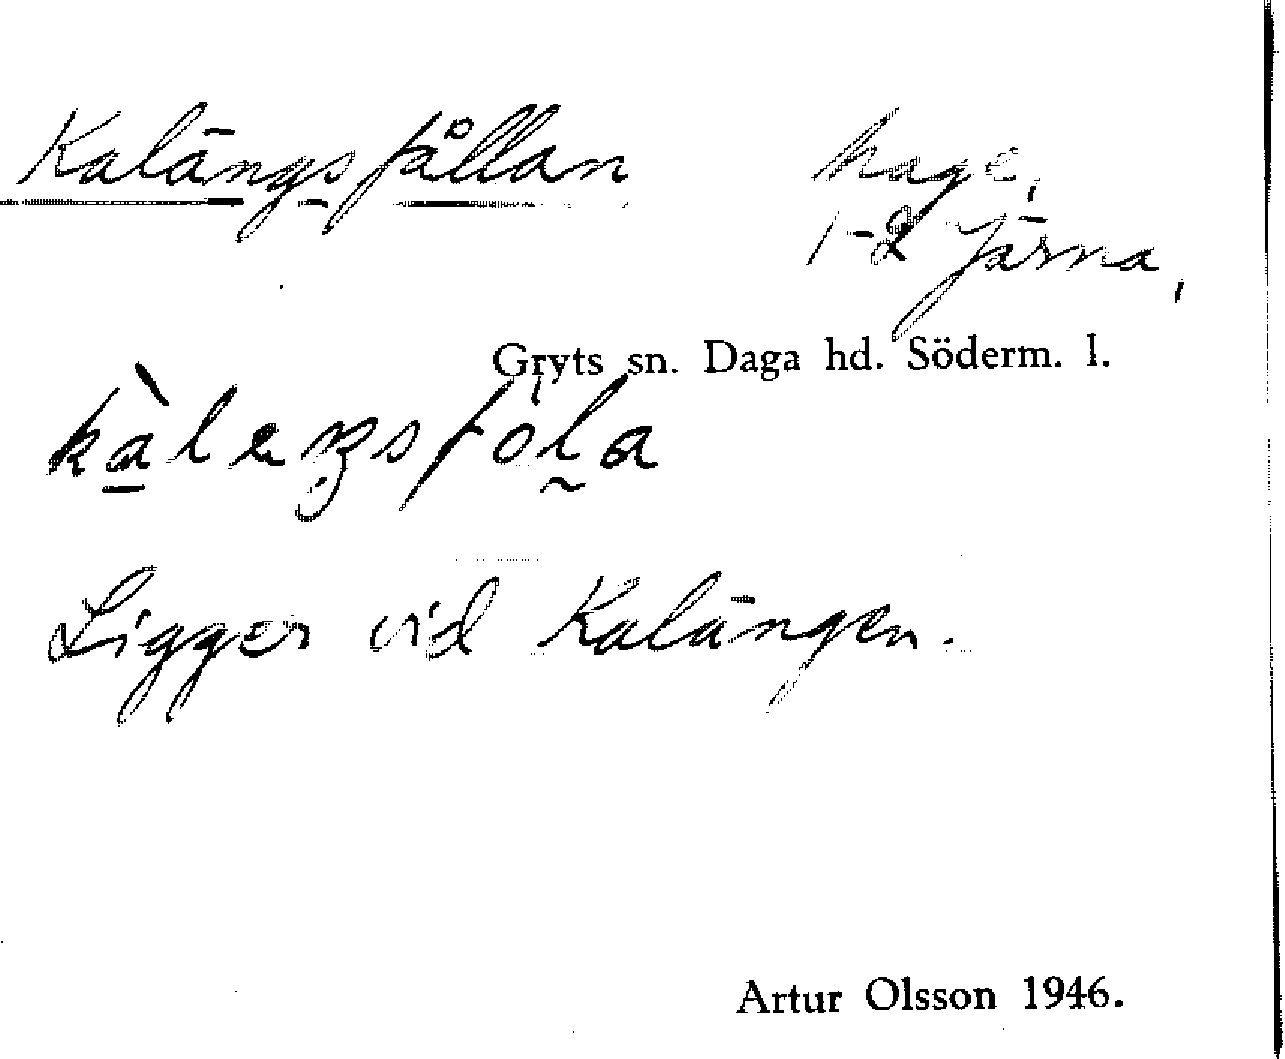 Kalängsfållan hage,
1-2 Järna,
Gryts sn. Daga hd. Söderm. l.
kàleŋsfòla
Ligger vid Kalängen.
Artur Olsson 1946.